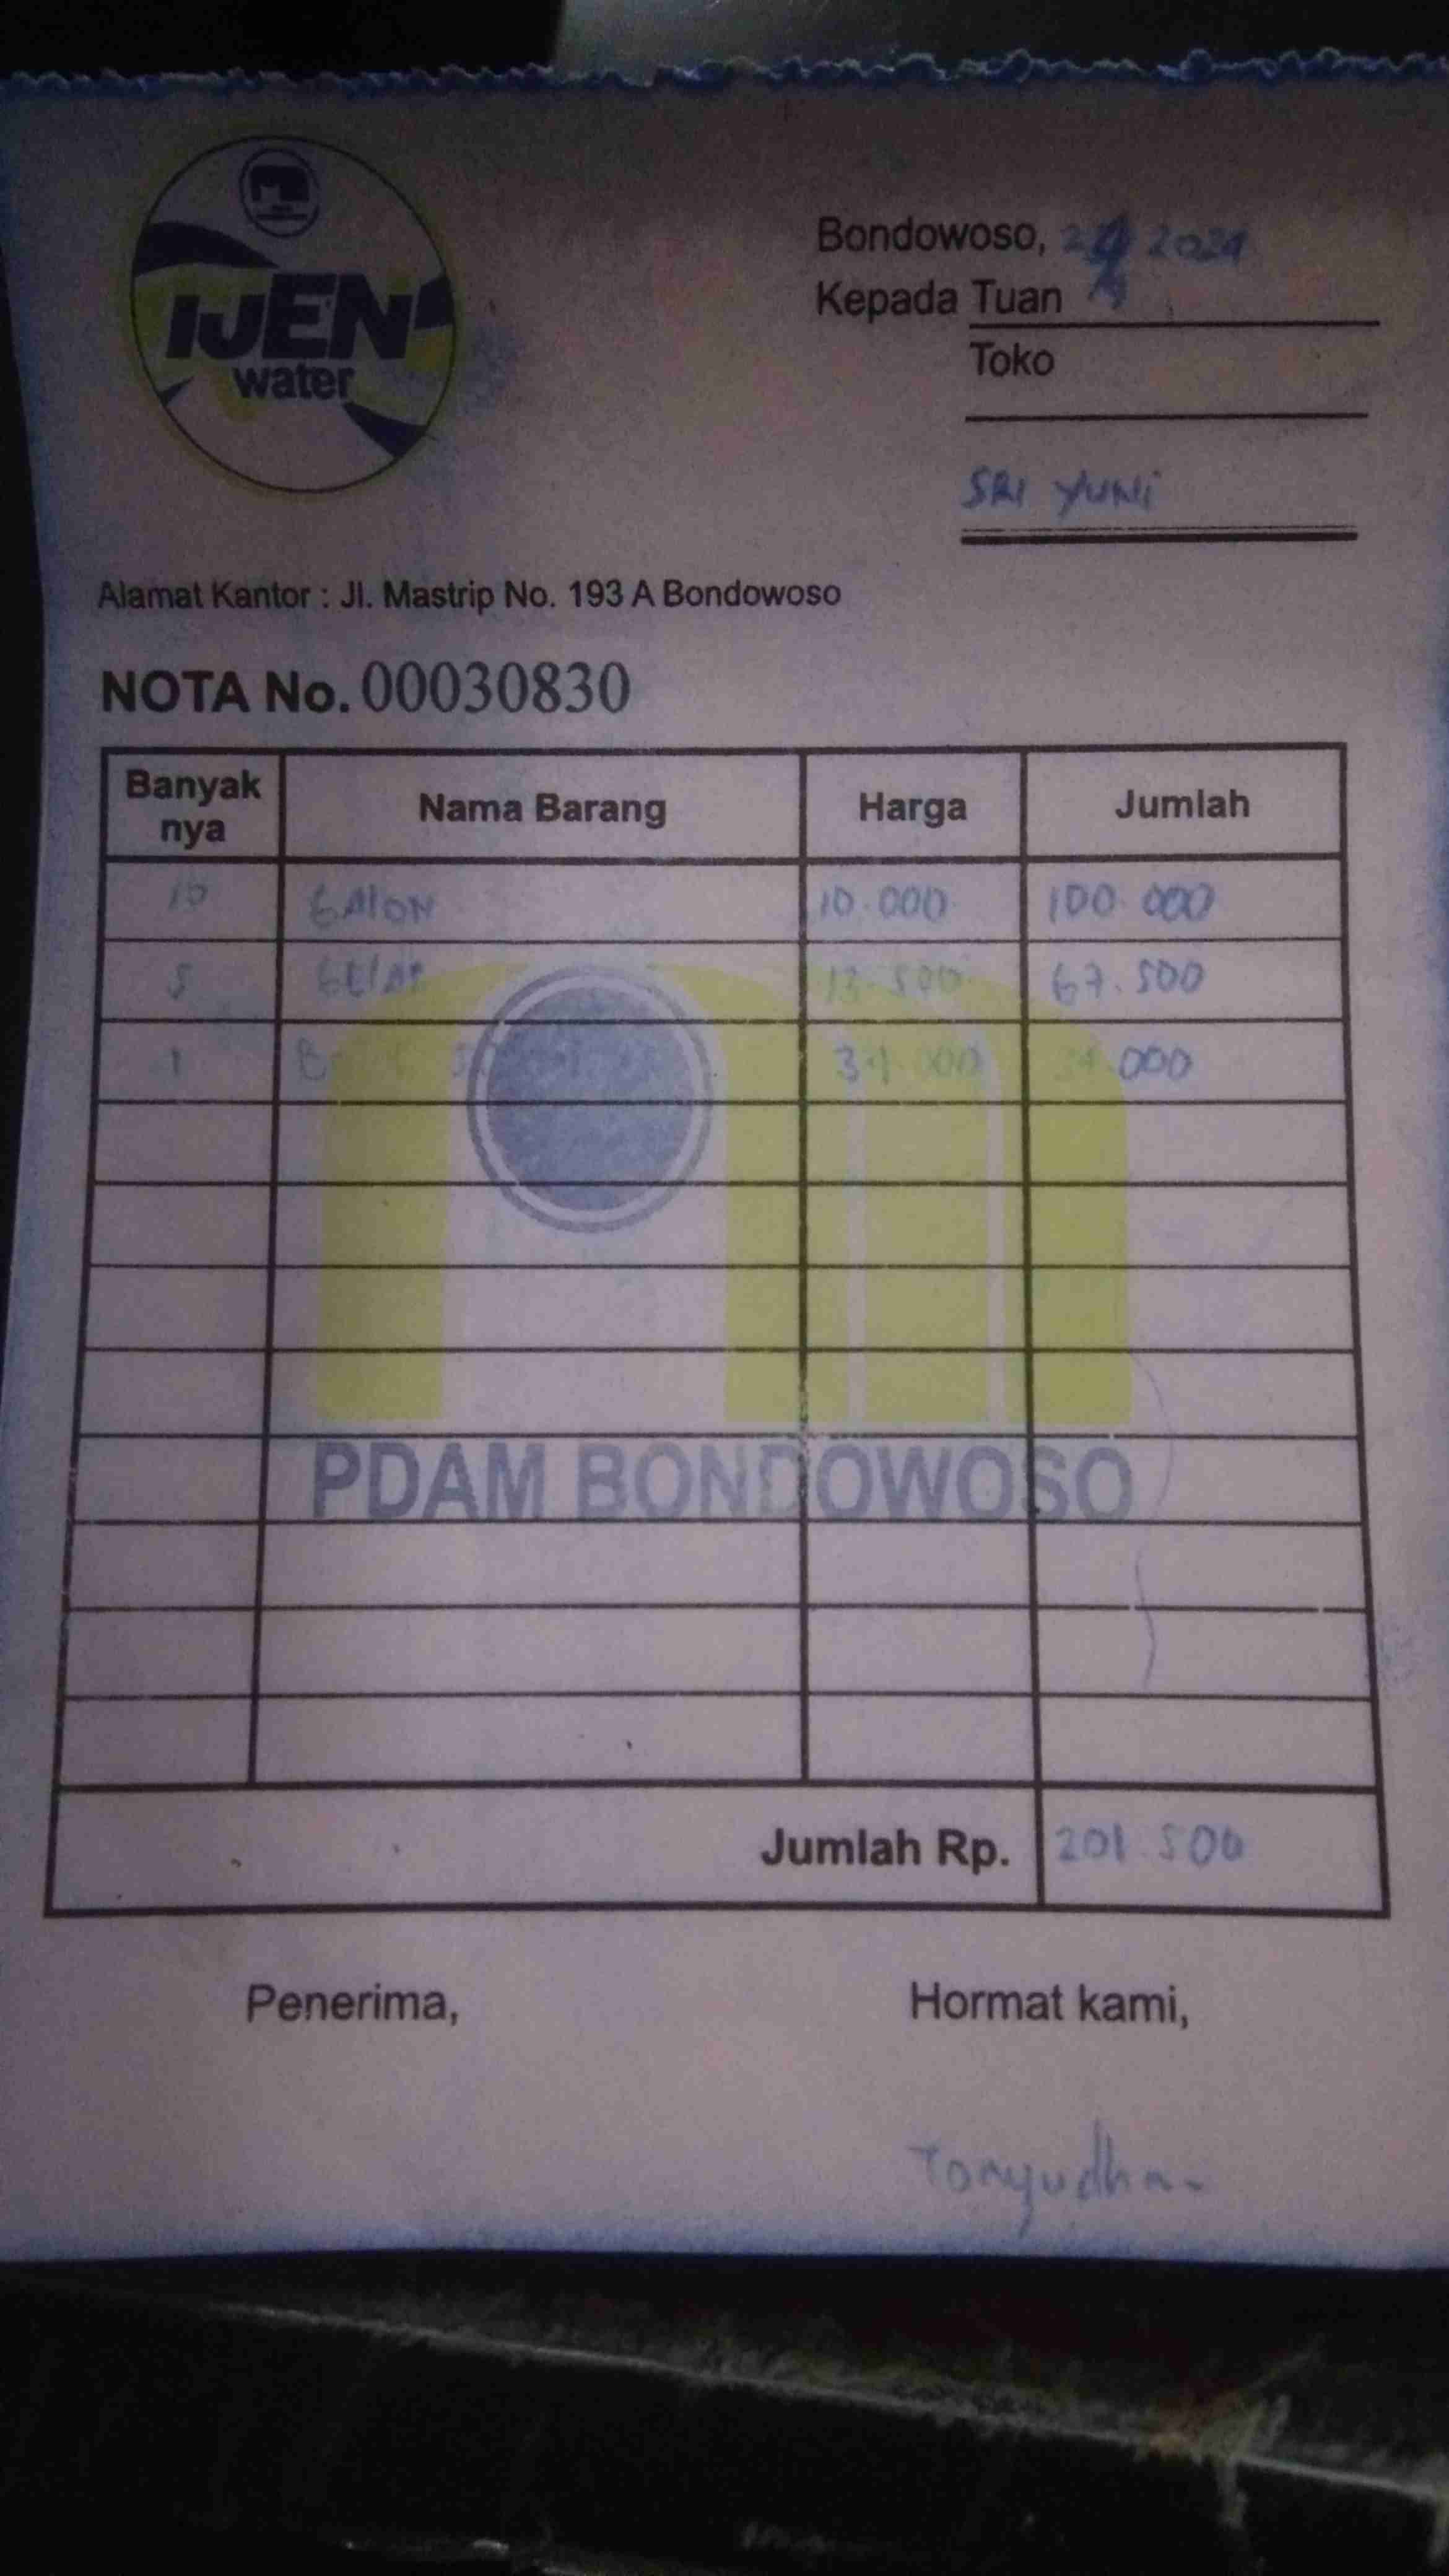 IJEN
water
Bondowoso, 2024
Kepada Tuan
Toko
SRI YUNI
Alamat Kantor : Jl. Mastrip No. 193 A Bondowoso
NOTA No. 00030830
Banyak nya Nama Barang Harga Jumlah
10 GALON 10.000 100.000
5 GELAS 13.500 67.500
1 34.000 34.000
PDAM BONDOWOSO
Jumlah Rp. 201.500
Penerima, Hormat kami,